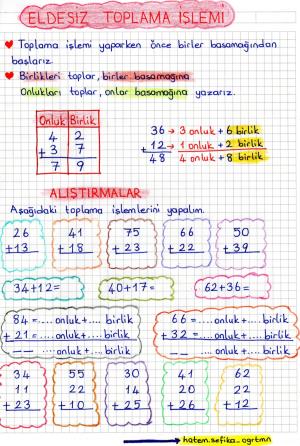 ELDESİZ TOPLAMA İŞLEMİ
Toplama işlemi yaparken önce birler basamağından
başlarız.
Birlikleri toplar, birler basamağına
Onlukları toplar, onlar basamağına yazarız.
Onluk Birlik
4 2
+ 3 7
7 9
36 → 3 onluk + 6 birlik
+ 12 → 1 onluk + 2 birlik
48 4 onluk + 8 birlik
ALIŞTIRMALAR
Aşağıdaki toplama işlemlerini yapalım.
26 41 75 66 50
+13 +18 +23 +22 +39
34+12= 40+17= 62+36=
84 = .... onluk + .... birlik
+ 21 = .... onluk + .... birlik
__ .... onluk + .... birlik
66 = .... onluk + .... birlik
+ 32 = .... onluk + .... birlik
__ .... onluk + .... birlik
34 55 30 41 62
11 22 14 20 22
+23 +10 +25 +26 +12
hatem.sefika_ogrtmn